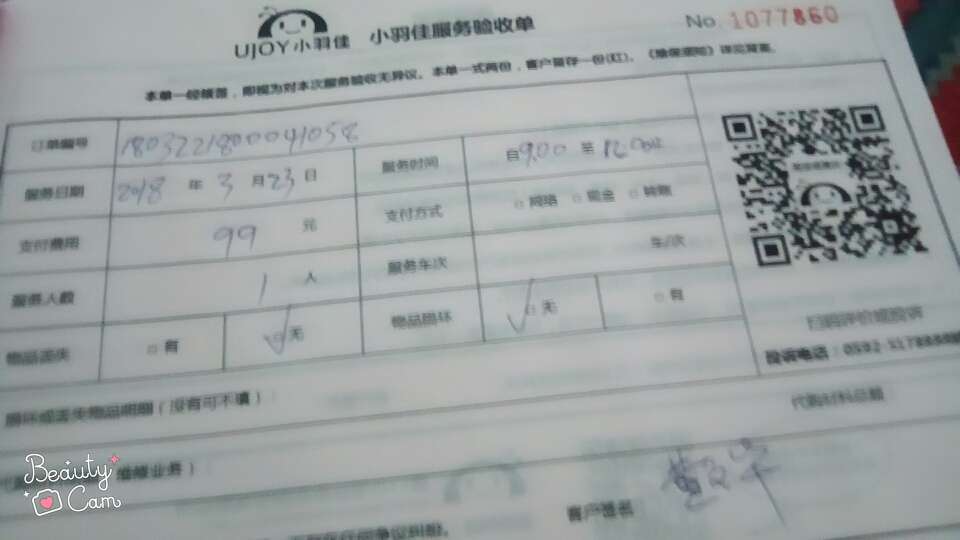 UJOY小羽佳 小羽佳服务验收单 No. 1077860
本单一经核签，即视为对本次服务验收无异议。本单一式两份，客户留存一份(红)。
订单编号 180322180004105 服务时间 自 9.00 至 12.00
服务日期 2018 年 3 月 23 日
支付费用 99 元 支付方式 □ 网络 □ 现金 □ 转账
服务人数 1 人 服务车次 车/次
物品丢失 □ 有 ☑ 无 物品损坏 ☑ 无 □ 有
扫码评价或投诉
投诉电话：0592-
损坏或丢失物品明细（没有可不填）：
代购材料总额
维修业务）：
客户签名
Beauty Cam